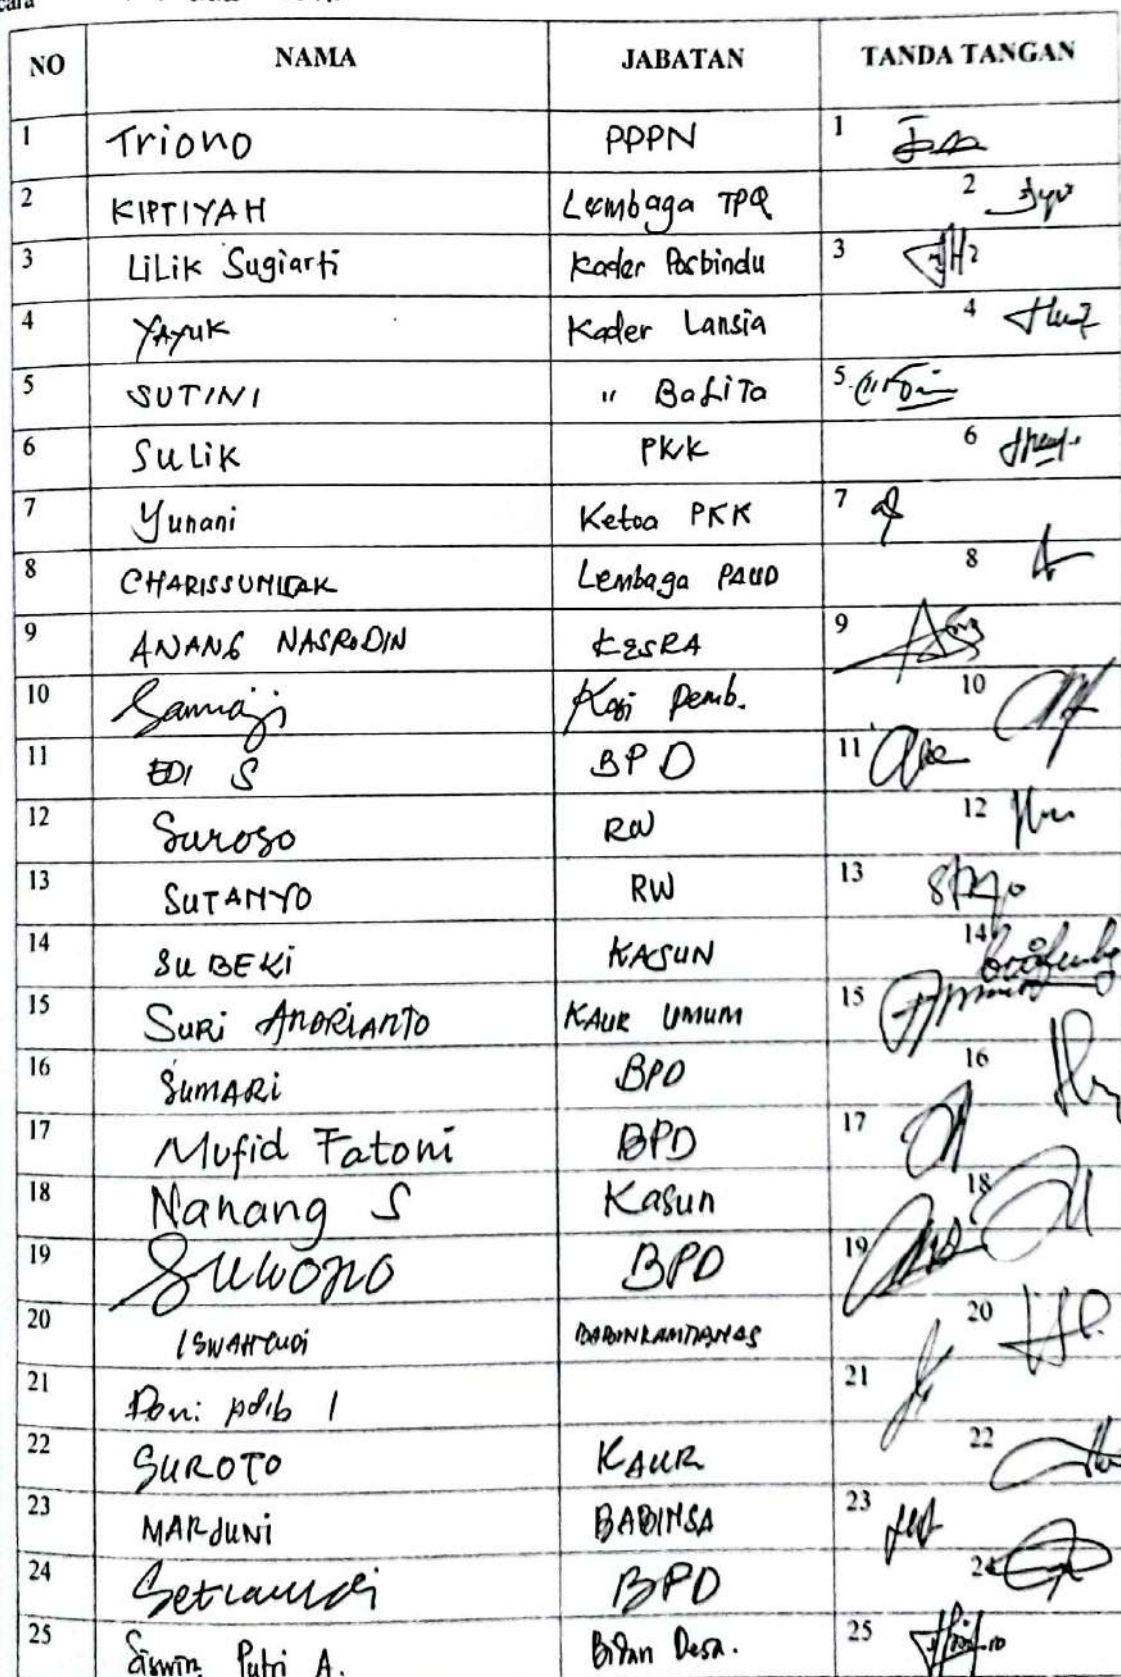 NO NAMA JABATAN TANDA TANGAN
1 Triono PPPN 1
2 KIPTIYAH Lembaga TPQ 2
3 LiLiK Sugiarti Kader Posbindu 3
4 YAYUK Kader Lansia 4
5 SUTINI " BaLiTa 5
6 SuLiK PKK 6
7 Yunani Ketua PKK 7
8 Lembaga PAUD 8
9 ANANG NASRODIN KESRA 9
10 Samiaji Kasi Pemb. 10
11 EDI S BPD 11
12 Suroso RW 12
13 SUTANYO RW 13
14 SUBEKi KASUN 14
15 SURi ANDRIANTO KAUR UMUM 15
16 SUMARi BPD 16
17 Mufid Fatoni BPD 17
18 Nanang S Kasun 18
19 Suwono BPD 19
20 ISWAHYUDI BABINKAMTIBMAS 20
21 21
22 SUROTO KAUR 22
23 MARJUNi BABINSA 23
24 BPD 24
25 Putri A. Bidan Desa. 25